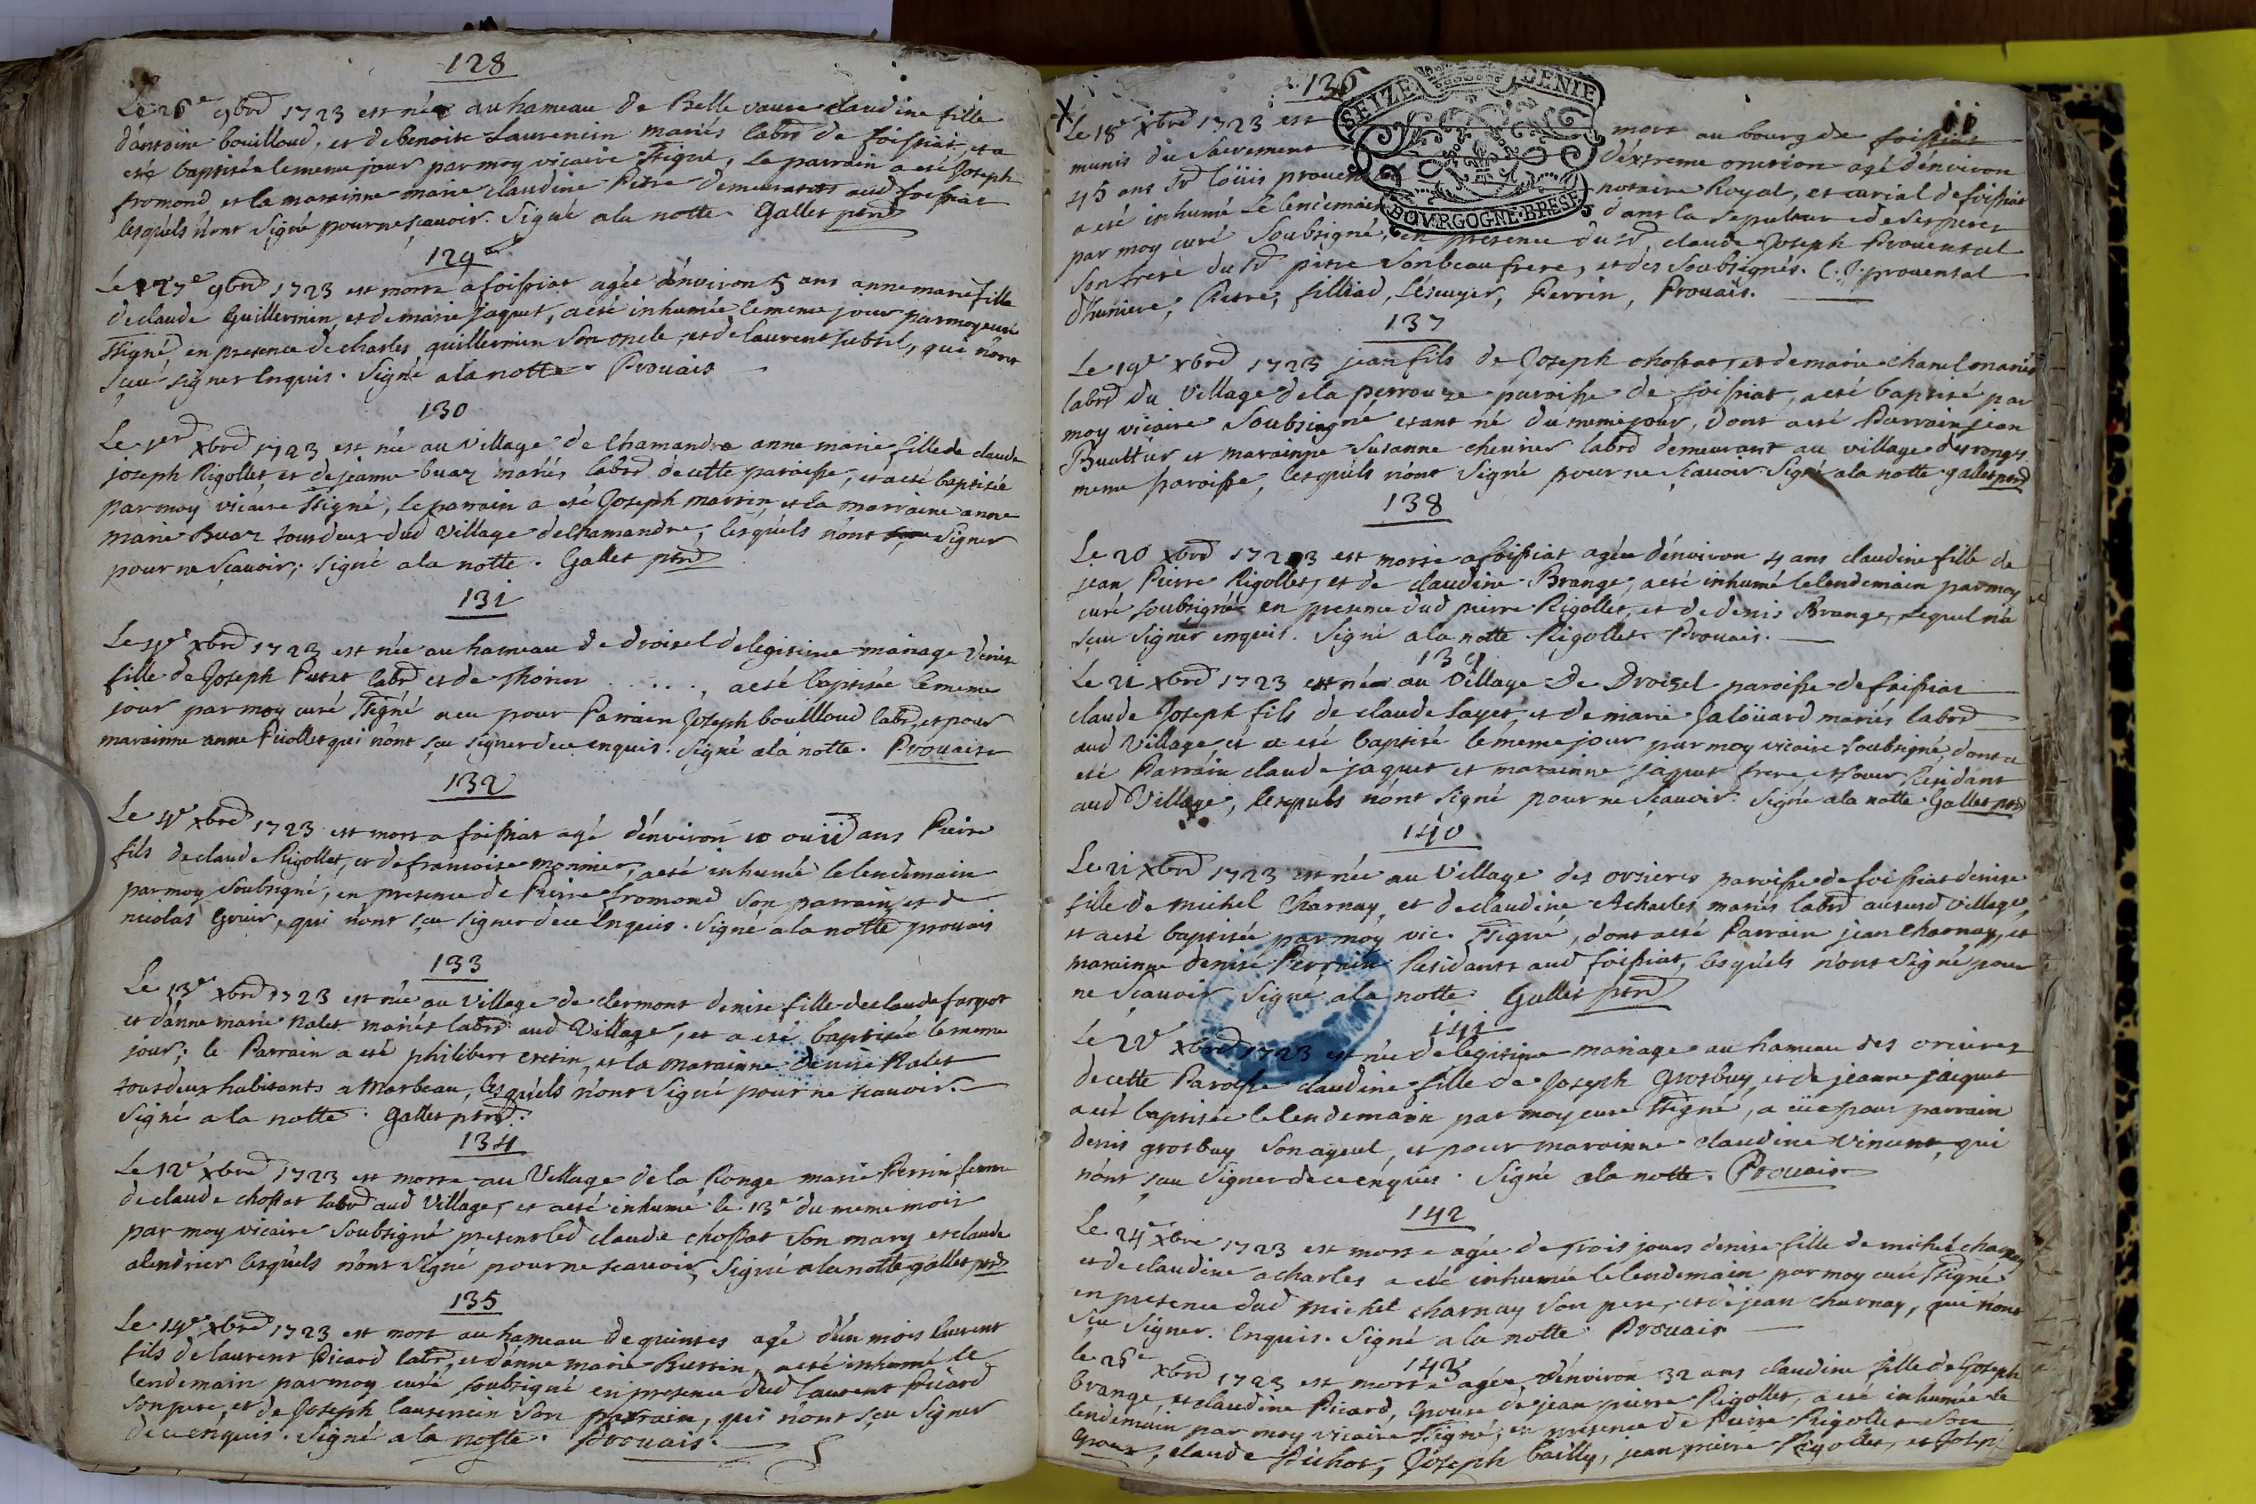 128
Le 26e 9brd 1723 est née au hameau de Belle vaure claudine fille
d'antoine bouilloud, et de benoite Laurencin mariés labrs de foissiat, et a
été baptisée le meme jour par moy vicaire ssigné, Le parrain a été Joseph
fromond et la marainne marie claudine Pitre demeurants aud foissiat
lesquels n'ont signé pour ne scavoir. Signé a la notte. Gallet ptrd
129
Le 27e 9brd 1723 est morte a foissiat agée d'environ 5 ans anne marie fille
de claude Guillermin, et de marie Jaquet, a eté inhumée le meme jour par moy curé
ssigné, en presence de charles guillermin son oncle, et de laurent subtil, qui n'ont
sceu signer Enquis. Signé a la notte. Prouais
130
Le 1erd xbrd 1723 est née au village de Chamandre anne marie fille de claude
joseph Rigollet et de jeanne buaz mariés labrs de cette paroisse, et a eté baptisée
par moy vicaire ssigné, le parrain a eté Joseph marrin, et la marraine anne
marie Buaz tous deux dud village de Chamandre, lesquels n'ont signer
pour ne scavoir; signé a la notte. Gallet ptrd
131
Le 4e xbrd 1723 est née au hameau de droisel de legitime mariage denise
fille de Joseph Putet labrd et de Thorin ....., a eté baptisée le meme
jour par moy curé ssigné a eu pour Parrain Joseph bouilloud labrd, et pour
marainne anne Picollet qui n'ont sçeu signer de ce enquis. Signé a la notte. Prouais
132
Le 4e xbrd 1723 est mort a foissiat agé d'environ 10 ou 11 ans Pierre
fils de claude Rigollet, et de francoise monnier, a eté inhumé le lendemain
par moy soubsigné, en presence de Pierre fromond son parrain, et de
nicolas Gruir, qui n'ont sçeu signer de ce Enquis. Signé a la notte prouais
133
Le 13e xbrd 1723 est née au village de clermont denise fille de claude fargot
et d'anne marie Nalet mariés labrs aud Village, et a eté baptisée le meme
jour; le Parrain a eté philibert cretin, et la marainne denise Nalet
tous deux habitants a Marbeau, lesquels n'ont signé pour ne scavoir.
Signé a la notte. Gallet ptrd.
134
Le 12e xbrd 1723 est morte au Village de la Ronge marie Perrin femme
de claude chossat labrd aud Village, et a eté inhumé le 13e du meme mois
par moy vicaire soubsigné present led claude chossat son mary et claude
alendrier lesquels n'ont signé pour ne scavoir, Signé a la notte gallet ptrd
135
Le 14e xbrd 1723 est mort au hameau de quintes agé d'un mois laurent
fils de laurent Picard labrd, et d'anne marie Buttin, a eté inhumé le
lendemain par moy curé soubsigné en presence dud laurent Picard
son pere, et de Joseph laurencin son parrain, qui n'ont sçeu signer
de ce enquis. Signé a la notte. Prouais.
136
SEIZE DENIE
BOURGOGNE·BRESSE
Le 18e xbrd 1723 est mort au bourg de foissiat
munis du sacrement d'extreme onction agé d'environ
45 ans Sr loüis provensal notaire Royal, et curial de foissiat
a eté inhumé Le lendemain dans la sepulture de ses peres
par moy curé soubsigné, en presence du Sr claude Joseph Provensal
son frere du Sr pitre son beau frere, et des soubsignés. C. J. provensal
d'huniere, Pitre, filliad, Lescuyer, Perrin, Prouais.
137
Le 19e xbrd 1723 jean fils de Joseph chossat, et de marie chanel mariés
labrd du Village de la perrouze paroisse de foissiat, a eté baptisé par
moy vicaire soubsigné etant né du meme jour, dont a eté Parrain jean
Buattier et marainne Susanne chevrier labrd demeurant au village des ronges
meme paroisse, lesquels n'ont signé pour ne scavoir signé a la notte gallet ptrd
138
Le 20 xbrd 1723 est morte a foissiat agée d'environ 4 ans claudine fille de
jean Pierre Rigollet, et de claudine Brange, a eté inhumé le lendemain par moy
curé soubsigné en presence dud pierre Rigollet, et de denis Brange, Lequel n'a
sceu signer enquis. Signé a la notte. Rigollet. Prouais.
139
Le 21 xbrd 1723 est né au Village De Droizel paroisse de foissiat
claude Joseph fils de claude Layet, et de marie Jaloüard mariés labrd
aud Village, et a eté baptisé le meme jour par moy vicaire soubsigné, dont a
eté Parrain claude jaquet et marainne jaquet frere et soeur Residant
aud Village, lesquels n'ont signé pour ne scavoir. Signé a la notte Gallet ptrd
140
Le 21 xbrd 1723 est née au Village des orsieres paroisse de foissiat denise
fille de michel Charnay, et de claudine Acharles mariés labrd au susd village,
et a eté baptisée par moy vic. ssigné, dont a eté Parrain jean Charnay, et
marainne denise Perrain Residants aud foissiat, lesquels n'ont signé pour
ne scavoir signé a la notte. Gallet ptrd
141
Le 22 xbrd 1723 est née de legitime mariage au hameau des orcieres
de cette Paroisse claudine fille de Joseph Grosbuy, et de jeanne jaiquet
a eté baptisée le lendemain par moy curé ssigné, a eüe pour parrain
denis grosbuy son ayeul, et pour marainne claudine vincent, qui
n'ont sceu signer de ce enquis. Signé a la notte. Prouais
142
Le 24e xbre 1723 est morte agée de trois jours denise fille de michel charnay
et de claudine acharles a eté inhumée le lendemain par moy curé ssigné
en presence dud michel charnay son pere, et de jean charnay, qui n'ont
sceu signer. Enquis. Signé a la notte Prouais
143
le 26e xbrd 1723 est morte agée d'environ 32 ans claudine fille de Joseph
brange, et claudine Picard, Epouse de jean pierre Rigollet, a eté inhumée le
lendemain par moy vicaire ssigné, en presence de Pierre Rigollet son
Epoux, claude Pichot, Joseph bailly, jean pierre Rigollet, et Joseph